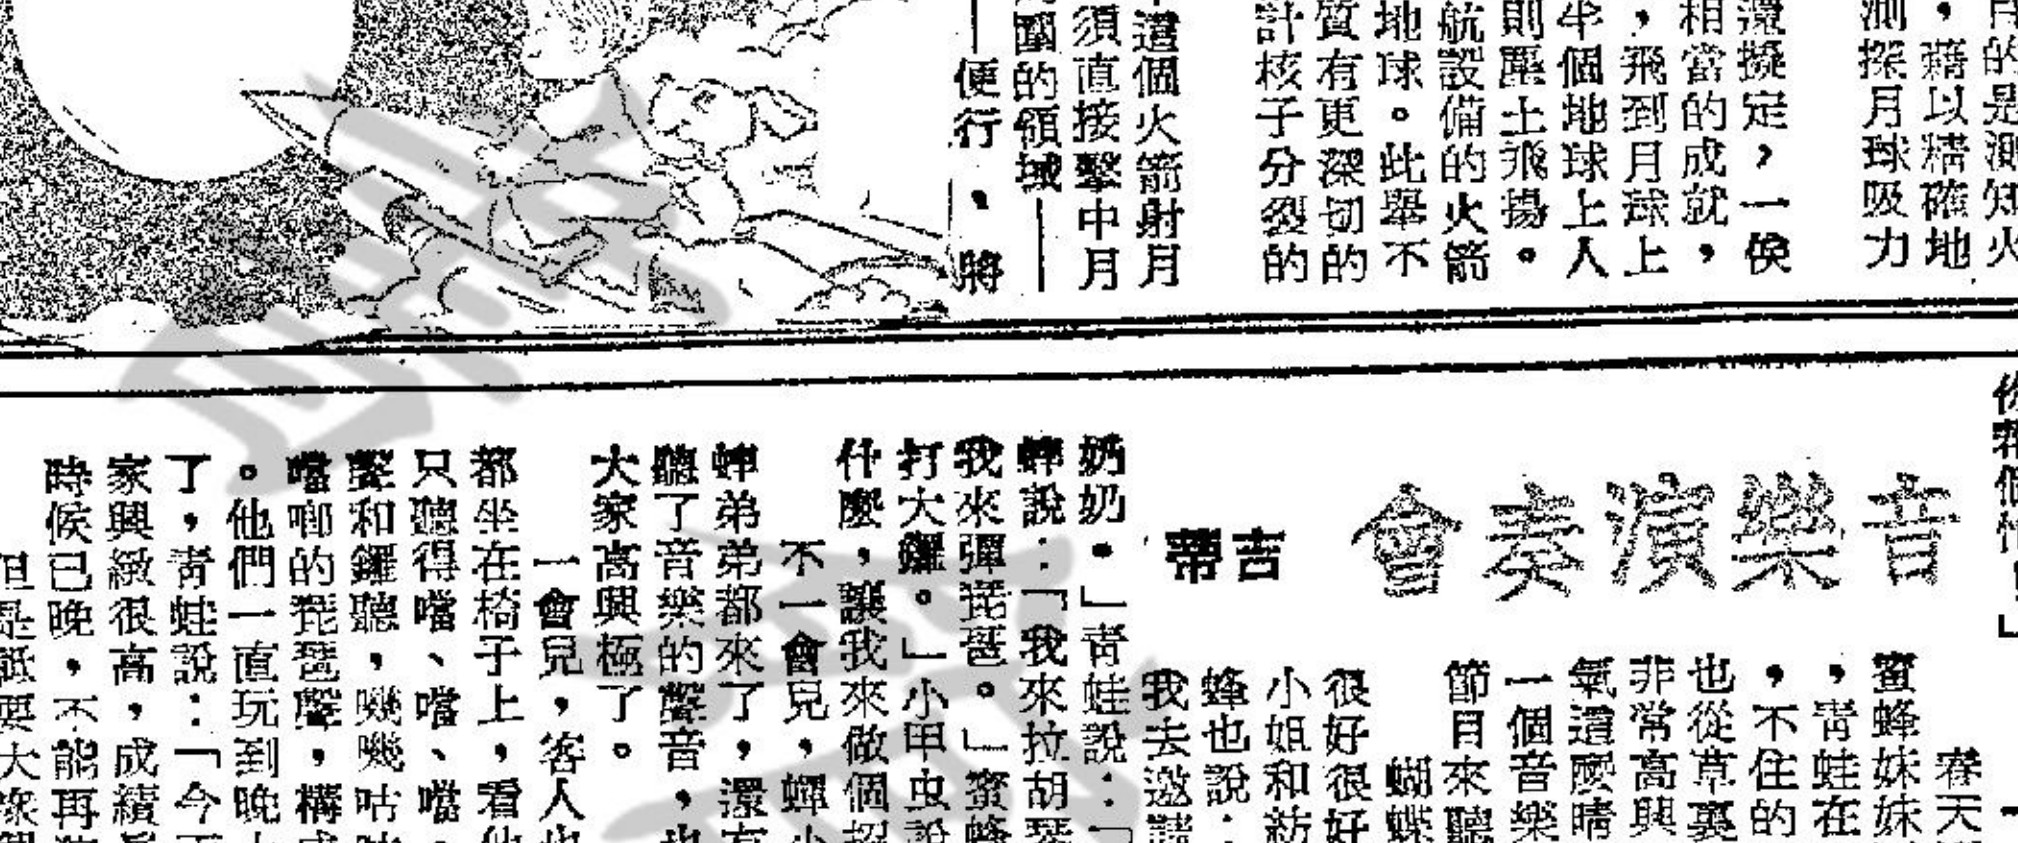 的是測知火
，藉以精確地
測探月球吸力
還擬定，一俟
相當的成就，
，飛到月球上
半個地球上人
則塵土飛揚。
航設備的火箭
地球。此舉不
質有更深切的
計核子分裂的
這個火箭射月
須直接擊中月
國的領域——
——便行，將
音樂演奏會
吉蒂
春天
蜜蜂妹妹
，青蛙在
，不住的
也從草裏
非常高興
氣這麼晴
一個音樂
節目來聽
蝴蝶
很好很好
小姐和紡
蜂也說：
我去邀請
奶奶。」青蛙說：「
蟬說：「我來拉胡琴
我來彈琵琶。」蜜蜂
打大鑼。」小甲虫說
什麼，讓我來做個招
不一會兒，蟬小
蟬弟弟都來了，還有
聽了音樂的聲音，也
大家高興極了。
一會兒，客人也
都坐在椅子上，看他
只聽得噹、噹、噹，
聲和鑼聽，嘰嘰咕咕
噹啷的琵琶聲，構成
。他們一直玩到晚上
了，青蛙說：「今天
家興緻很高，成績
時候已晚，不能再
但是祗要大家